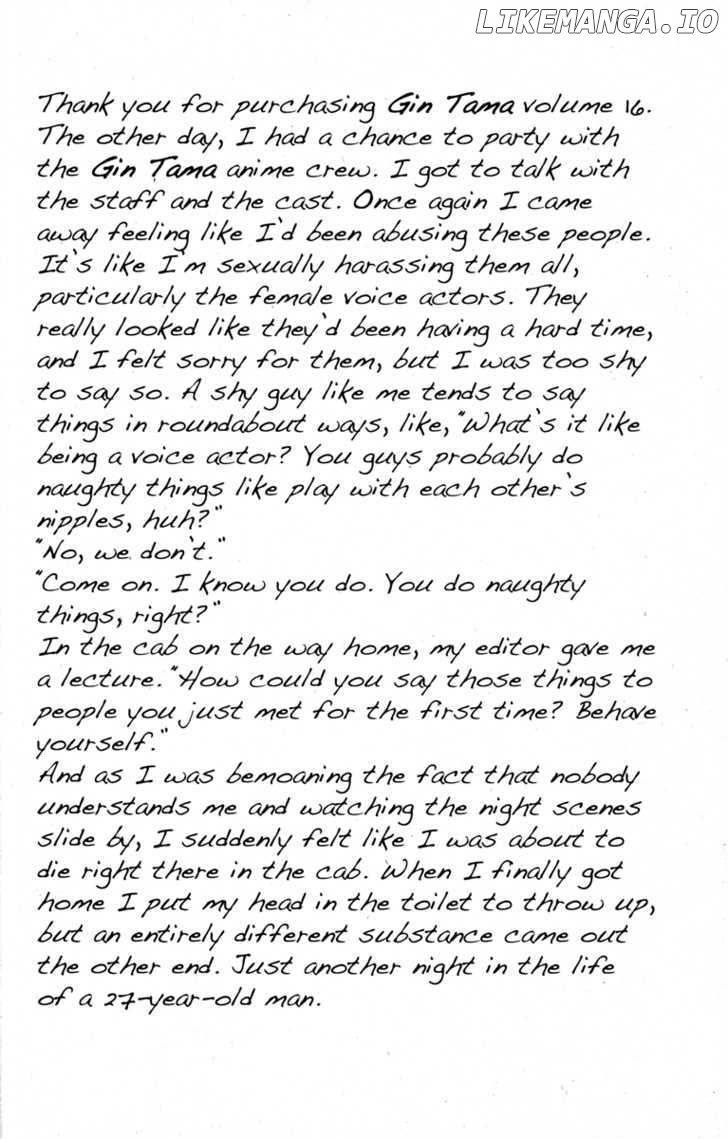 LIKEMANGA.IO
Thank you for purchasing Gin Tama volume 16.
The other day, I had a chance to party with
the Gin Tama anime crew. I got to talk with
the staff and the cast. Once again I came
away feeling like I'd been abusing these people.
It's like I'm sexually harassing them all,
particularly the female voice actors. They
really looked like they'd been having a hard time,
and I felt sorry for them, but I was too shy
to say so. A shy guy like me tends to say
things in roundabout ways, like, "What's it like
being a voice actor? You guys probably do
naughty things like play with each other's
nipples, huh?"
"No, we don't."
"Come on. I know you do. You do naughty
things, right?"
In the cab on the way home, my editor gave me
a lecture. "How could you say those things to
people you just met for the first time? Behave
yourself."
And as I was bemoaning the fact that nobody
understands me and watching the night scenes
slide by, I suddenly felt like I was about to
die right there in the cab. When I finally got
home I put my head in the toilet to throw up,
but an entirely different substance came out
the other end. Just another night in the life
of a 27-year-old man.